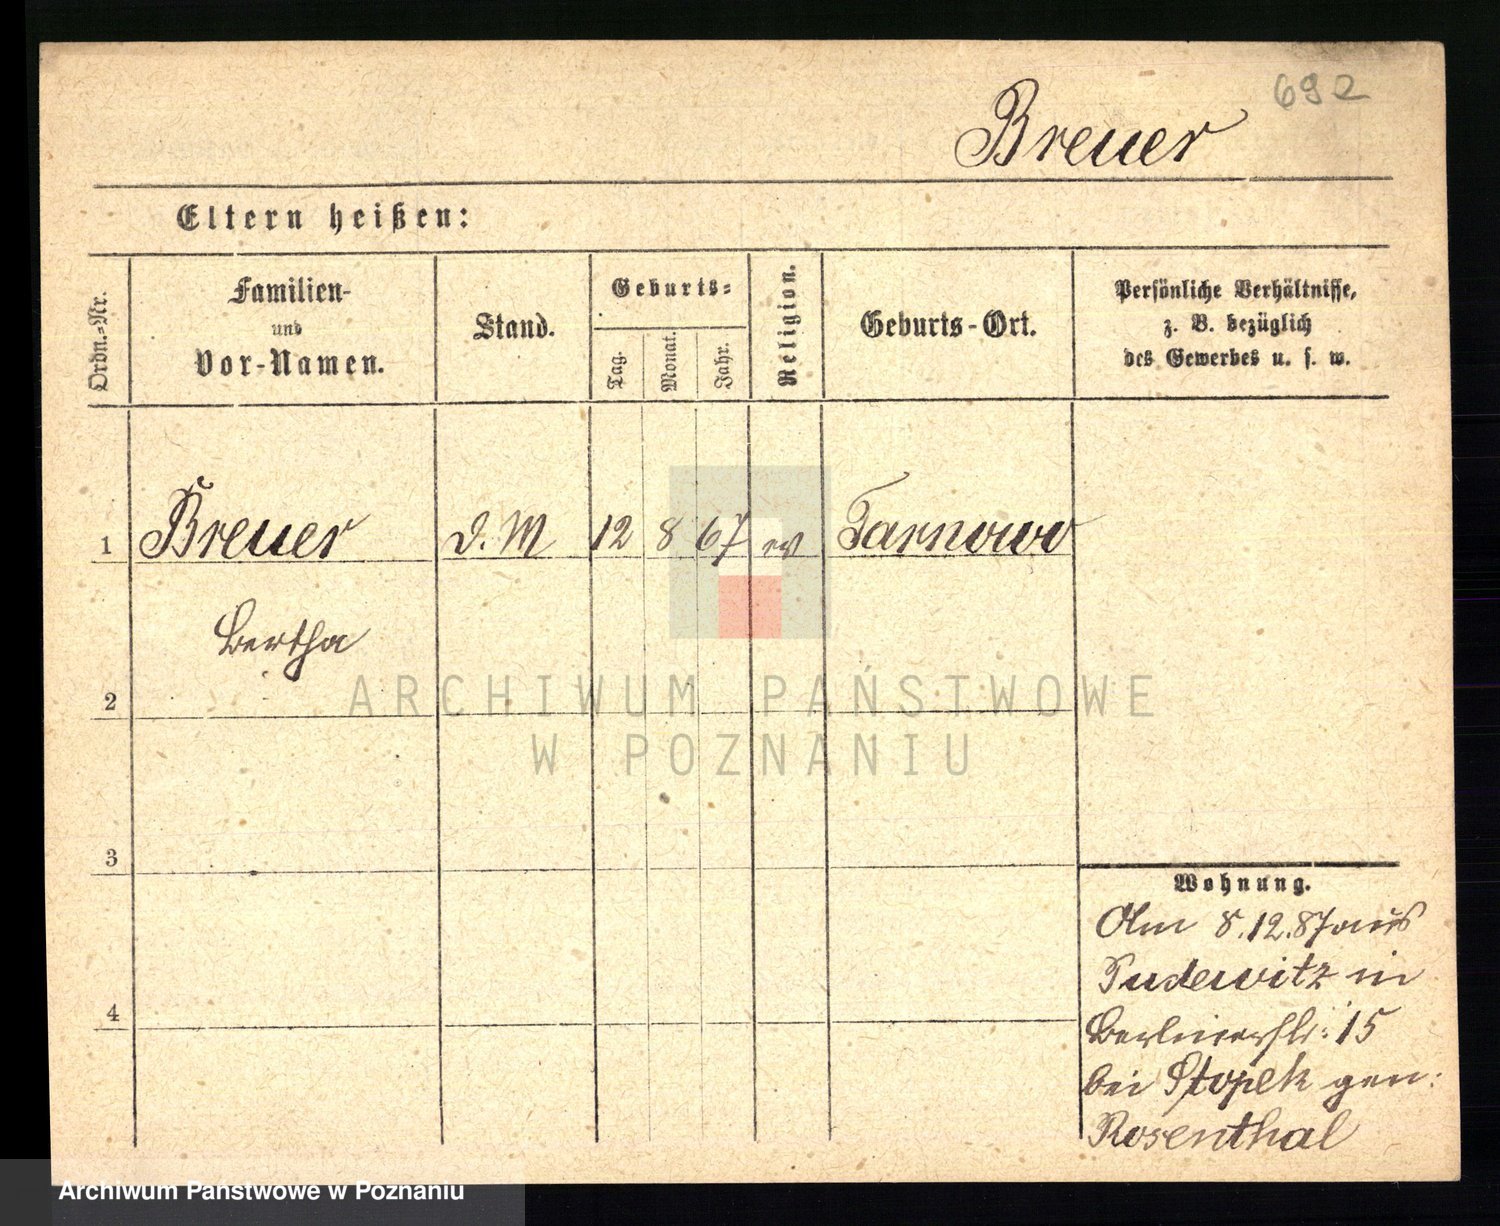 692
Breuer
Eltern heißen:
Ordn.-Nr.
Familien-
und
Vor-Namen.
Stand.
Geburts-
Tag.
Monat.
Jahr.
Religion.
Geburts-Ort.
Persönliche Verhältnisse,
z. B. bezüglich
des Gewerbes u. s. w.
1 Breuer d. M 12 8 67 ev Tarnowo
Bertha
2
3
4
Wohnung.
Am 8.12.87 aus
Pudewitz in
Berlinerstr: 15
bei Stopek gen:
Rosenthal
ARCHIWUM PAŃSTWOWE
W POZNANIU
Archiwum Państwowe w Poznaniu